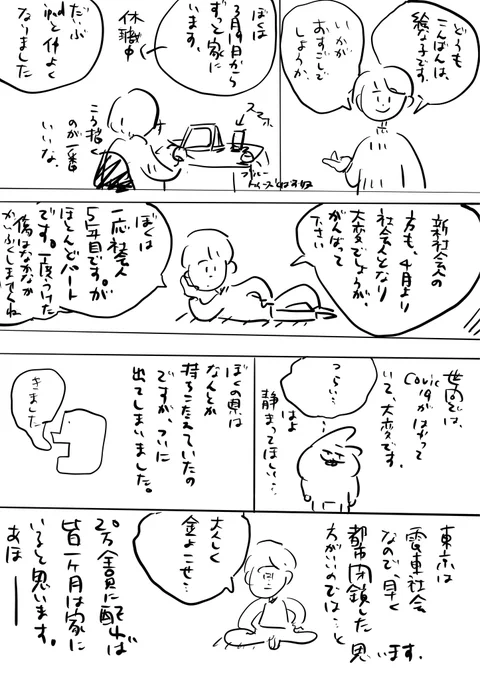 どうも
こんばんは、
絵な子です。
いかが
おすごしで
しょうか、
ぼくは
3月19日から
ずっと家に
います。
休職中
だいぶ
ipadと仲よく
なりました
スマホ
こう描く
のが一番
いいな。
新社会人の
方も、4月より
社会人となり
大変でしょうが、
がんばって
下さい
ぼくは
一応社会人
5年目です。が
ほとんどパート
です。一度つけた
傷はなかなか
かいふくしませんね
世間では、
Covic
19がはやって
いて、大変です。
つら…
はよ
静まってほしい…
ぼくの県は
なんとか
持ちこたえていたの
ですが、ついに
出てしまいました。
きました
東京は
電車社会
なので、早く
都市閉鎖した
方がいいのでは…と
思います。
大人しく
金よこせ…
20万全員に配れば
皆一ヶ月は家に
いると思います。
あほー